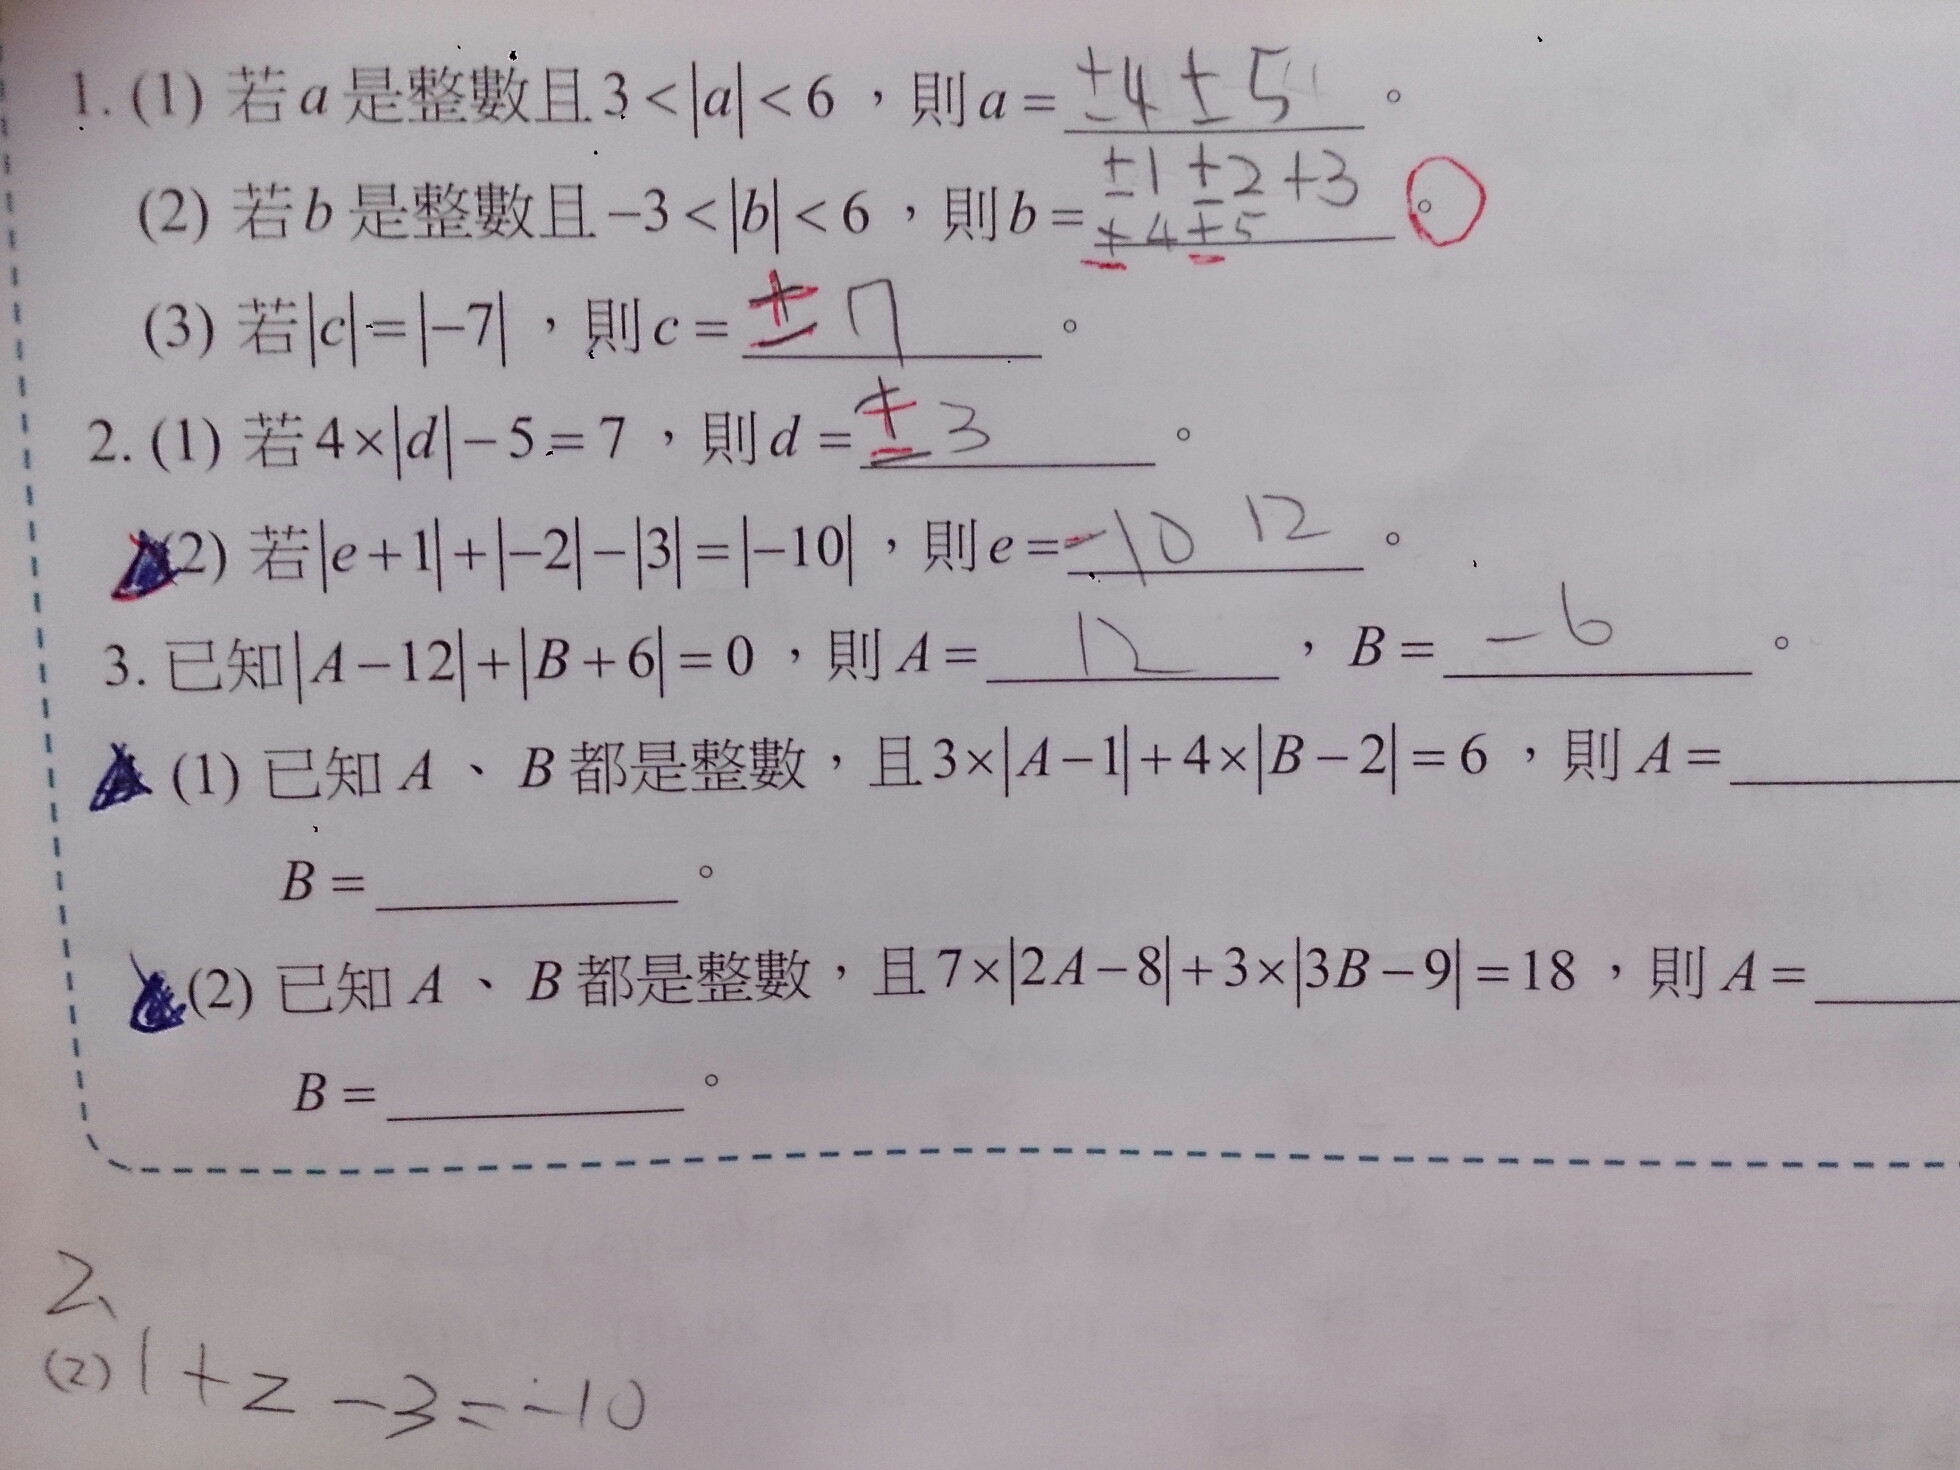 1. (1) 若a是整數且3<|a|<6，則a=±4 ±5。
(2) 若b是整數且−3<|b|<6，則b=±1 ±2 +3 ±4 ±5。
(3) 若|c|=|−7|，則c=±7。
2. (1) 若4×|d|−5=7，則d=±3。
(2) 若|e+1|+|−2|−|3|=|−10|，則e=-10 12。
3. 已知|A−12|+|B+6|=0，則A=12，B=-6。
(1) 已知A、B都是整數，且3×|A−1|+4×|B−2|=6，則A=
B=。
(2) 已知A、B都是整數，且7×|2A−8|+3×|3B−9|=18，則A=
B=。
2、
(2) 1+2-3=-10